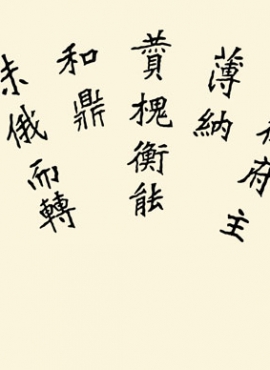 府主
薄納
蕢槐衡能
和鼎
俄而轉